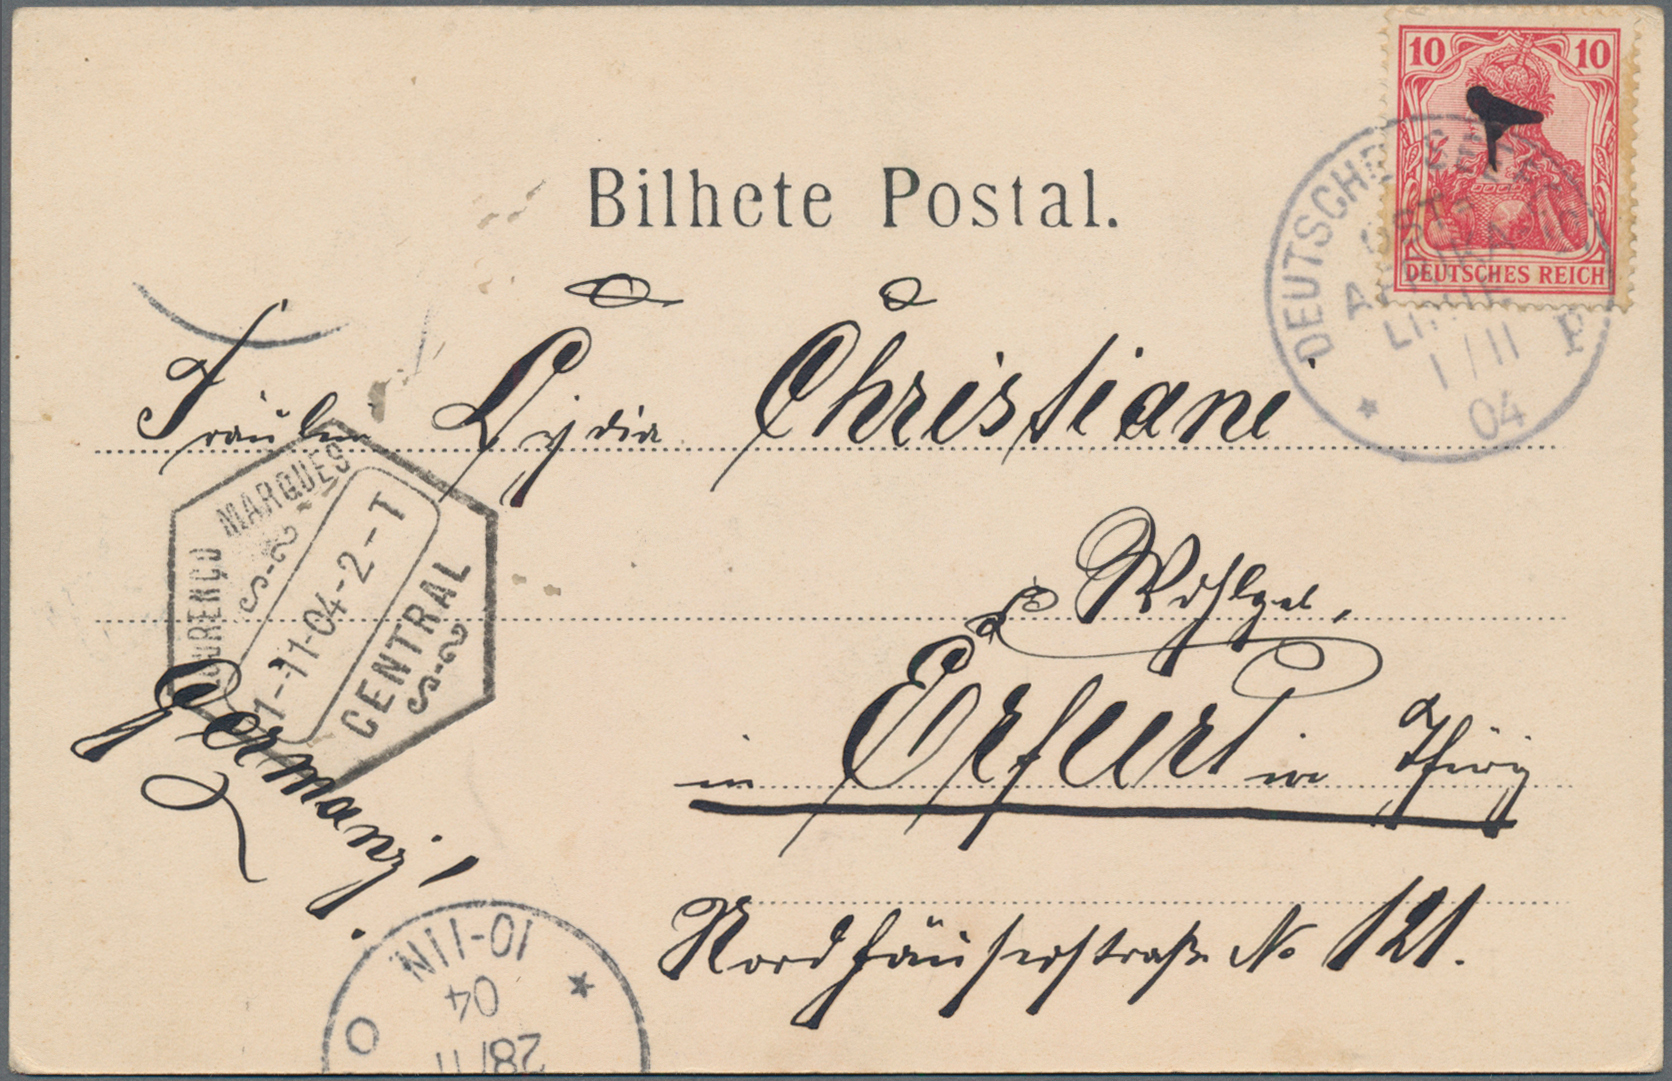 10 10
DEUTSCHES REICH
DEUTSCHE SEEPOST
OST-
AFRIKA-
LINIE
1/11 P
04
Bilhete Postal.
Fräulein Lydia Christiani
Wohlgeb.
in Erfurt in Thürg
Nordhäuserstraße No 121.
Germany!
LOURENCO MARQUES
1-11-04-2-T
CENTRAL
10-11N
04
28/11